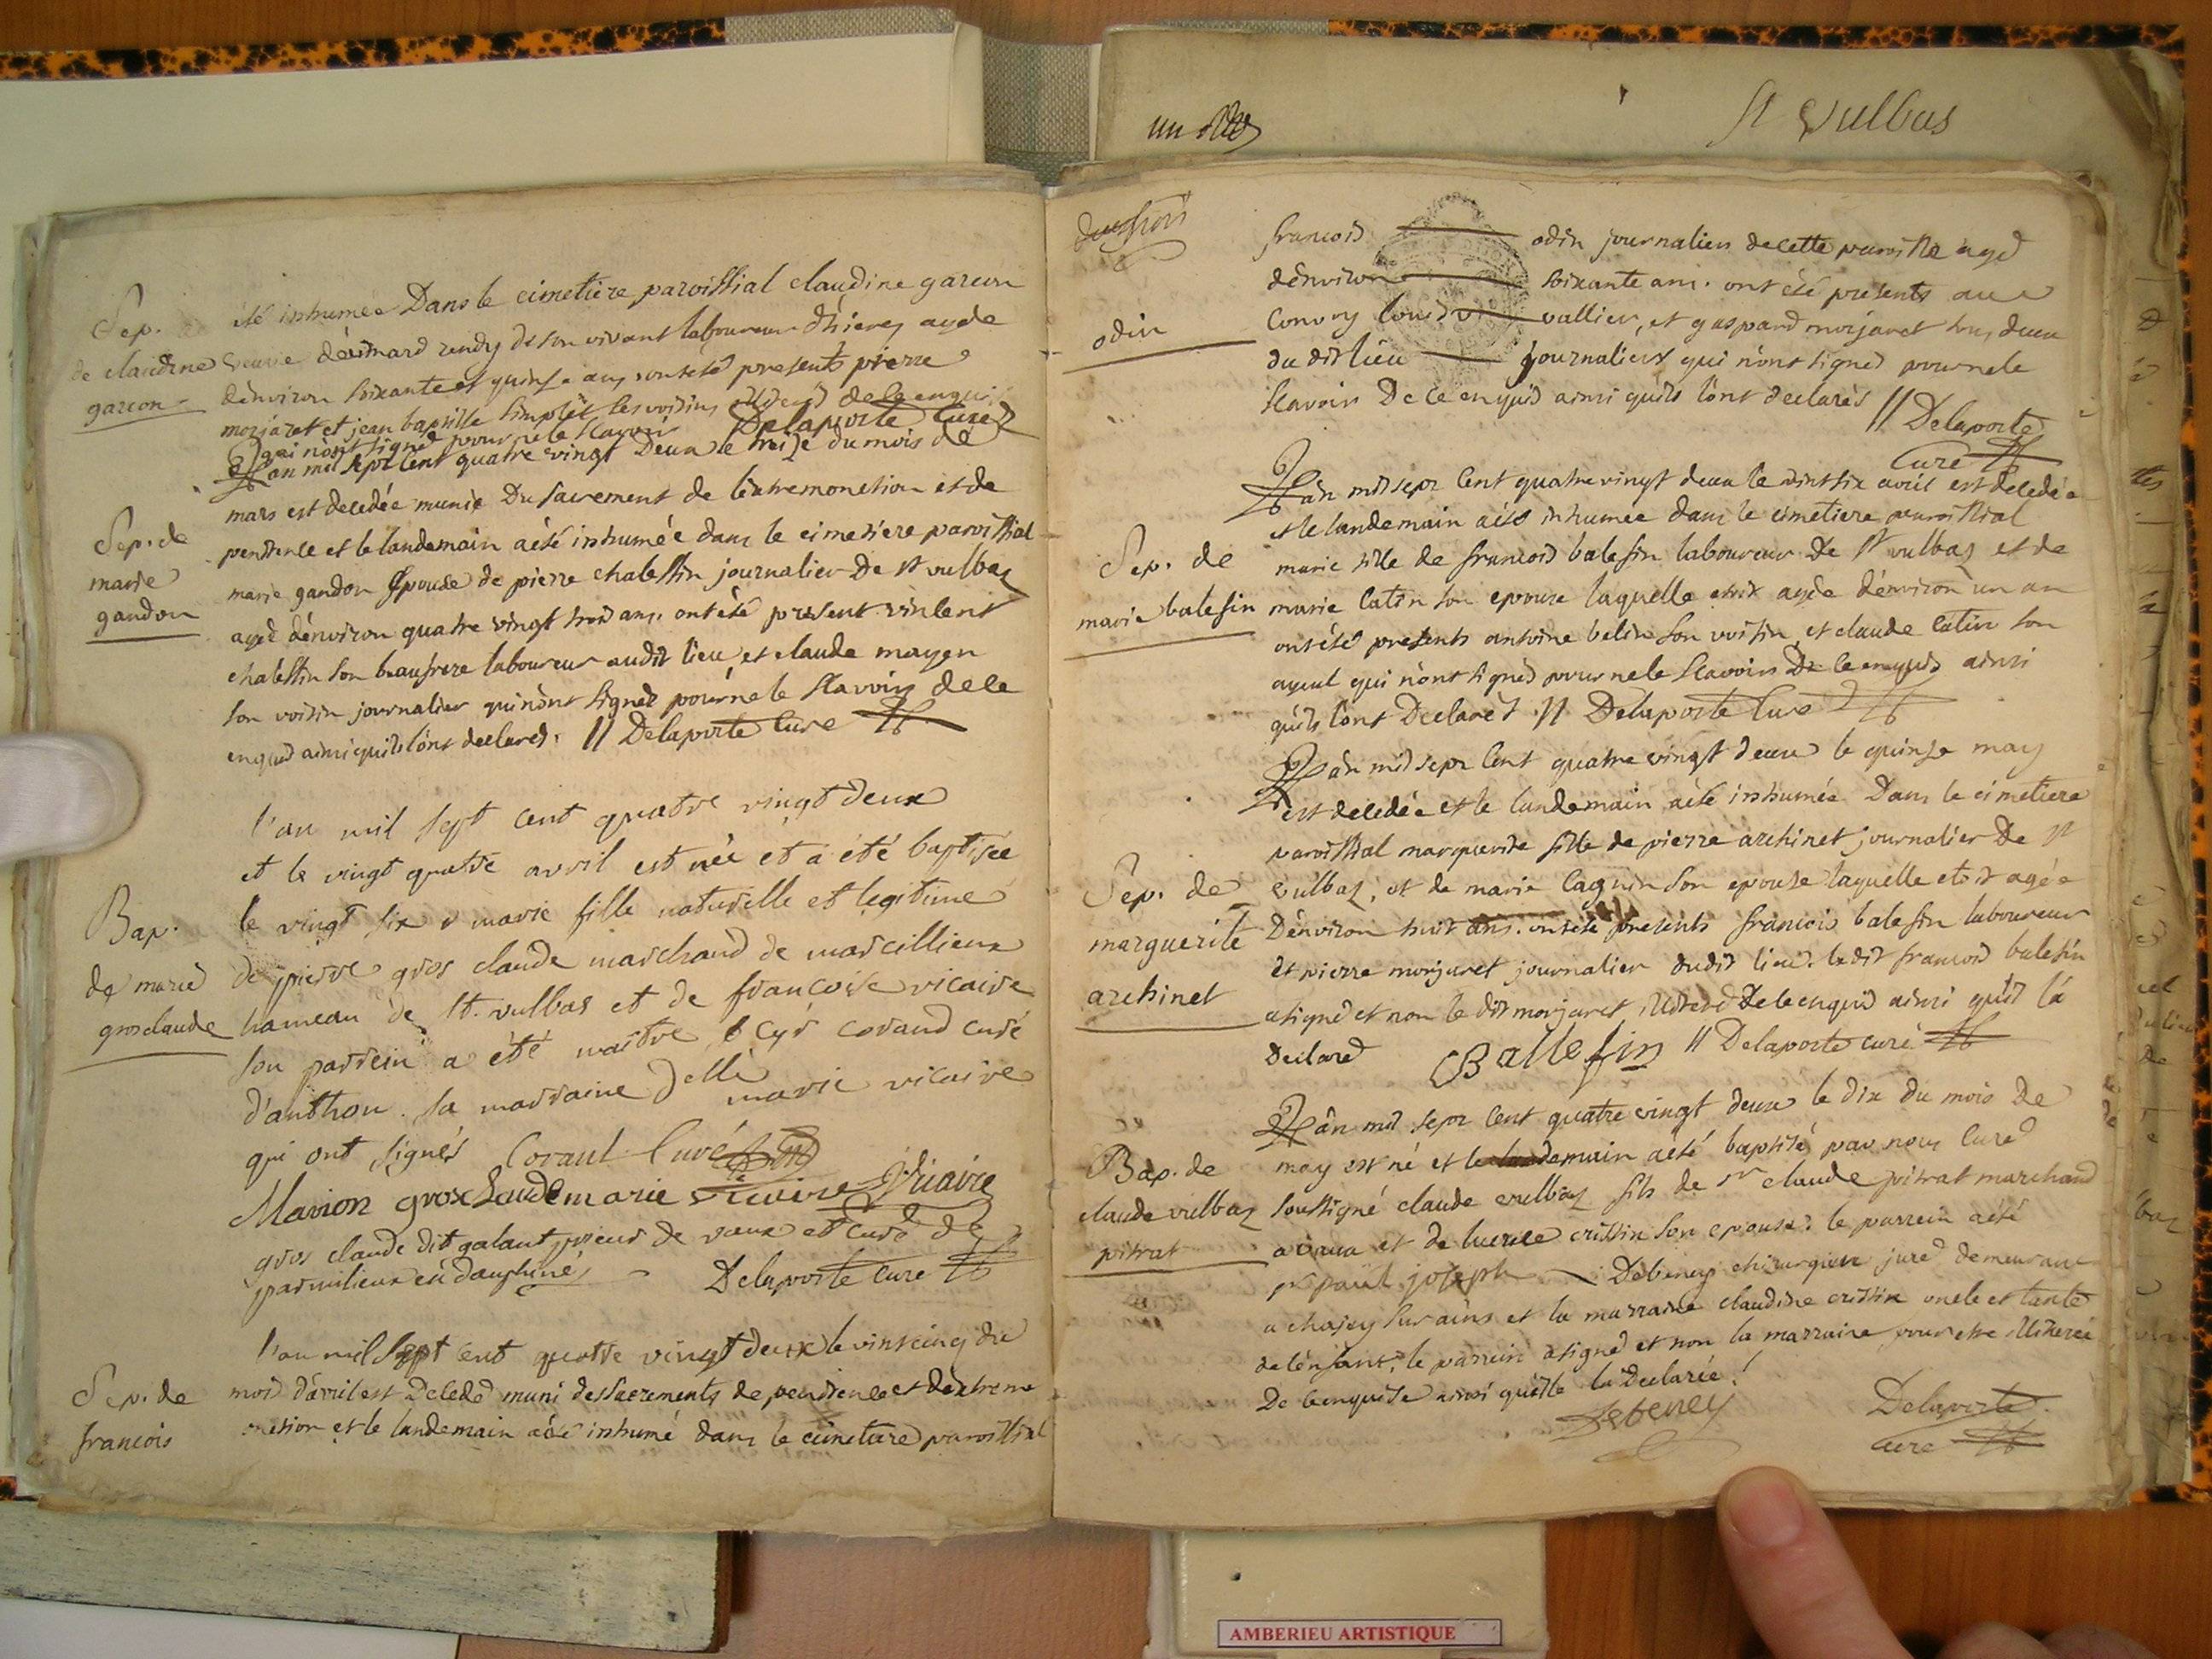 St Vulbas
Sep.
de claudine
garcon
été inhumée Dans le cimetiere paroissial claudine garcon
veuve de aimard rendy de son vivant laboureur d'hieres ayée
dénviron soixante et quinse ans ont été presents pierre
morjaret et jean baptiste simplet ses voisins illiterés de ce enquis
qui n'ont signé pour ne le scavoir Delaporte Curé
L'an mil sept cent quatre vingt Deux le treize du mois de
mars est decedée munie Du sacrement de l'extremonction et de
Sep. de
marie
gandon
penitence et le landemain a été inhumée dans le cimetiere paroissial
marie gandon Epouse de pierre chalessin journalier De st vulbas
ayée dénviron quatre vingt trois ans. ont été present vincent
chalessin son beaufrere laboureur audit lieu et claude mayen
son voisin journalier qui n'ont signés pour ne le scavoir de ce
enquis ainsi quils l'ont declarés. // Delaporte Curé
l'an mil sept cent quatre vingt deux
et le vingt quatre avril est née et a été baptisée
Bap.
de marie
grosclaude
le vingt six marie fille naturelle et legitime
de pierre gros claude marchand de marcillieux
hameau de st. vulbas et de françoise vicaire
son parrein a été maitre cyr coraud curé
d'anthon. sa marraine Delle marie vicaire
qui ont signés Coraut Curé
Marion grosclaude marie vicaire Vicaire
gros claude dit galant prieur de vaux et curé de
parmilieux en dauphiné, Delaporte Curé
l'an mil sept cent quatre vingt deux le vint cinq du
Sep. de
francois
mois d'avril est decedé muni des sacrements de penitence et déxtreme
onction et le landemain a été inhumé dans le cimetiere paroissial
odin
francois odin journalier de cette paroisse ayé
dénviron soixante ans. ont été presents au
Convoy louis vallier, et gaspard morjaret tous deux
du dit lieu journaliers qui n'ont signés pour ne le
scavoir De ce enquis ainsi quils l'ont declarés // Delaporte
Curé
L'an mil sept Cent quatre vingt deux le vint six avril est decedée
et le landemain a été inhumée dans le cimetiere paroissial
Sep. de
marie balesin
marie fille de francois balesin laboureur De st vulbas et de
marie catin son epouse laquelle etoit ayée dénviron un an
ont été presents antoine belin son voisin et claude catin son
ayeul qui n'ont signés pour ne le scavoir De ce enquis ainsi
quils l'ont Declarés // Delaporte Curé
L'an mil sept Cent quatre vingt deux le quinze may
est decedée et le landemain a été inhumée Dans le cimetiere
paroissial marguerite fille de pierre archinet journalier De st
Sep. de
marguerite
archinet
vulbas, et de marie cagnin son epouse laquelle etoit agée
Dénviron huit ans. ont été presents francois balesin laboureur
et pierre morjaret journalier dudit lieu. ledit francois balesin
a signé et non le dit morjaret illiteré De ce enquis ainsi quil l'a
Declaré Ballesin // Delaporte curé
L'an mil sept cent quatre vingt deux le dix du mois de
Bap. de
claude vulbas
pitrat
may est né et le landemain a été baptisé par nous Curé
soussigné claude vulbas fils de sr claude pitrat marchand
a vaux et de lucrece crittin son epouse. le parrein a été
sr paul joseph Debeney chirurgien juré demeurant
a chazey sur ains et la marraine claudine crittin oncle et tante
de l'enfant, le parrein a signé et non la marraine pour etre illiterée
De ce enquise ainsi quelle l'a Declarée.
Debeney
Delaporte
Curé
AMBERIEU ARTISTIQUE